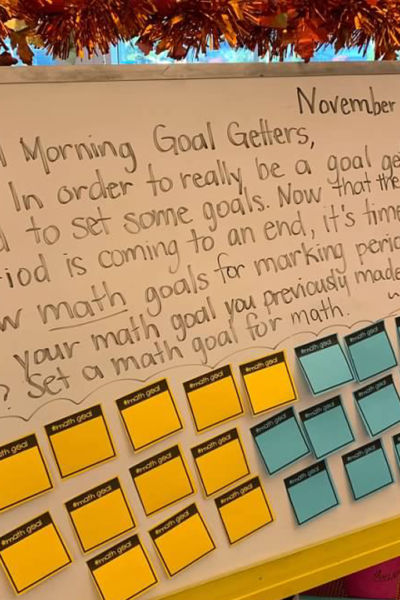 November
Morning Goal Getters,
In order to really be a goal
to set some goals. Now that the
is coming to an end, it's time
math goals for marking
your math goal you previously made
? Set a math goal for math.
#math goal #math goal #math goal #math goal #math goal #math goal #math goal
#math goal #math goal #math goal #math goal #math goal #math goal #math goal
#math goal #math goal #math goal #math goal #math goal #math goal